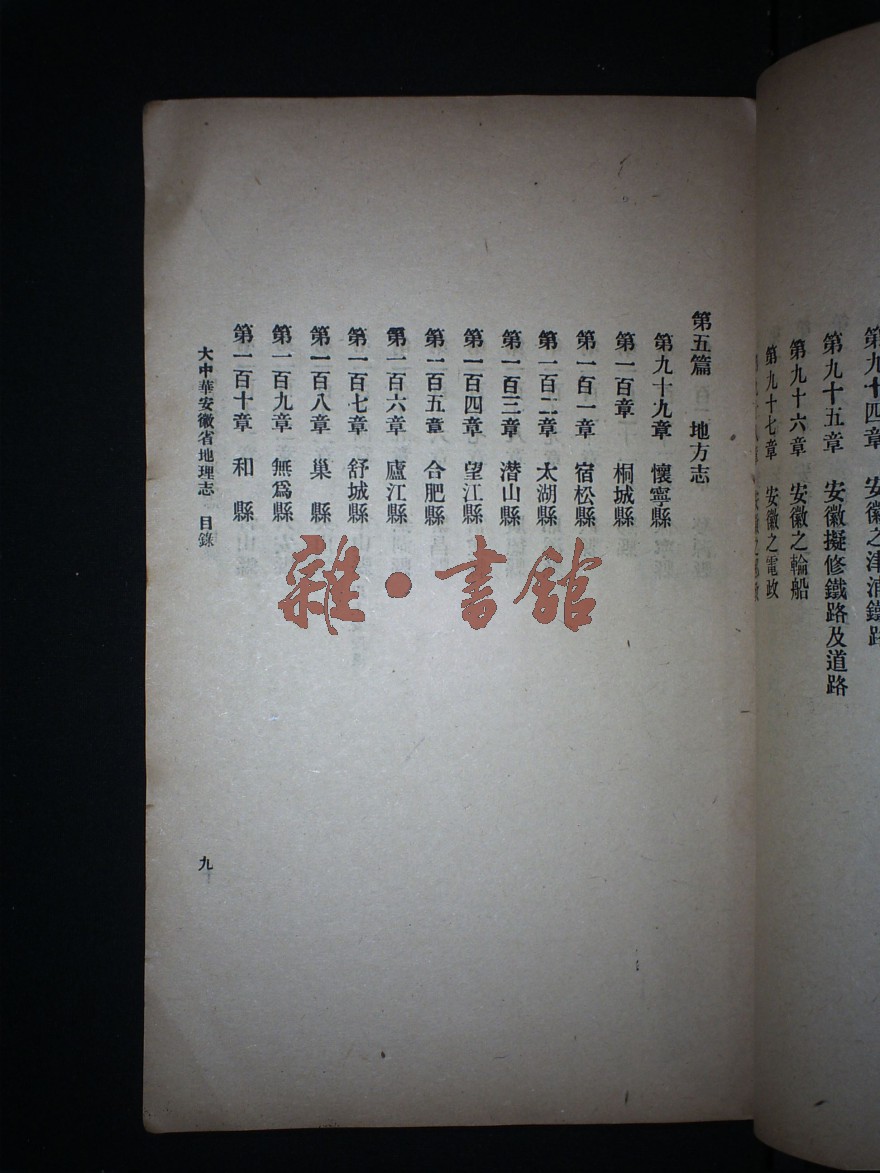 第九十四章　安徽之津浦鐵路
第九十五章　安徽擬修鐵路及道路
第九十六章　安徽之輪船
第九十七章　安徽之電政
第五篇　地方志
第九十九章　懷寧縣
第一百章　桐城縣
第一百一章　宿松縣
第一百二章　太湖縣
第一百三章　潛山縣
第一百四章　望江縣
第一百五章　合肥縣
第一百六章　廬江縣
第一百七章　舒城縣
第一百八章　巢　縣
第一百九章　無爲縣
第一百十章　和　縣
大中華安徽省地理志　目錄
九
雜·書館